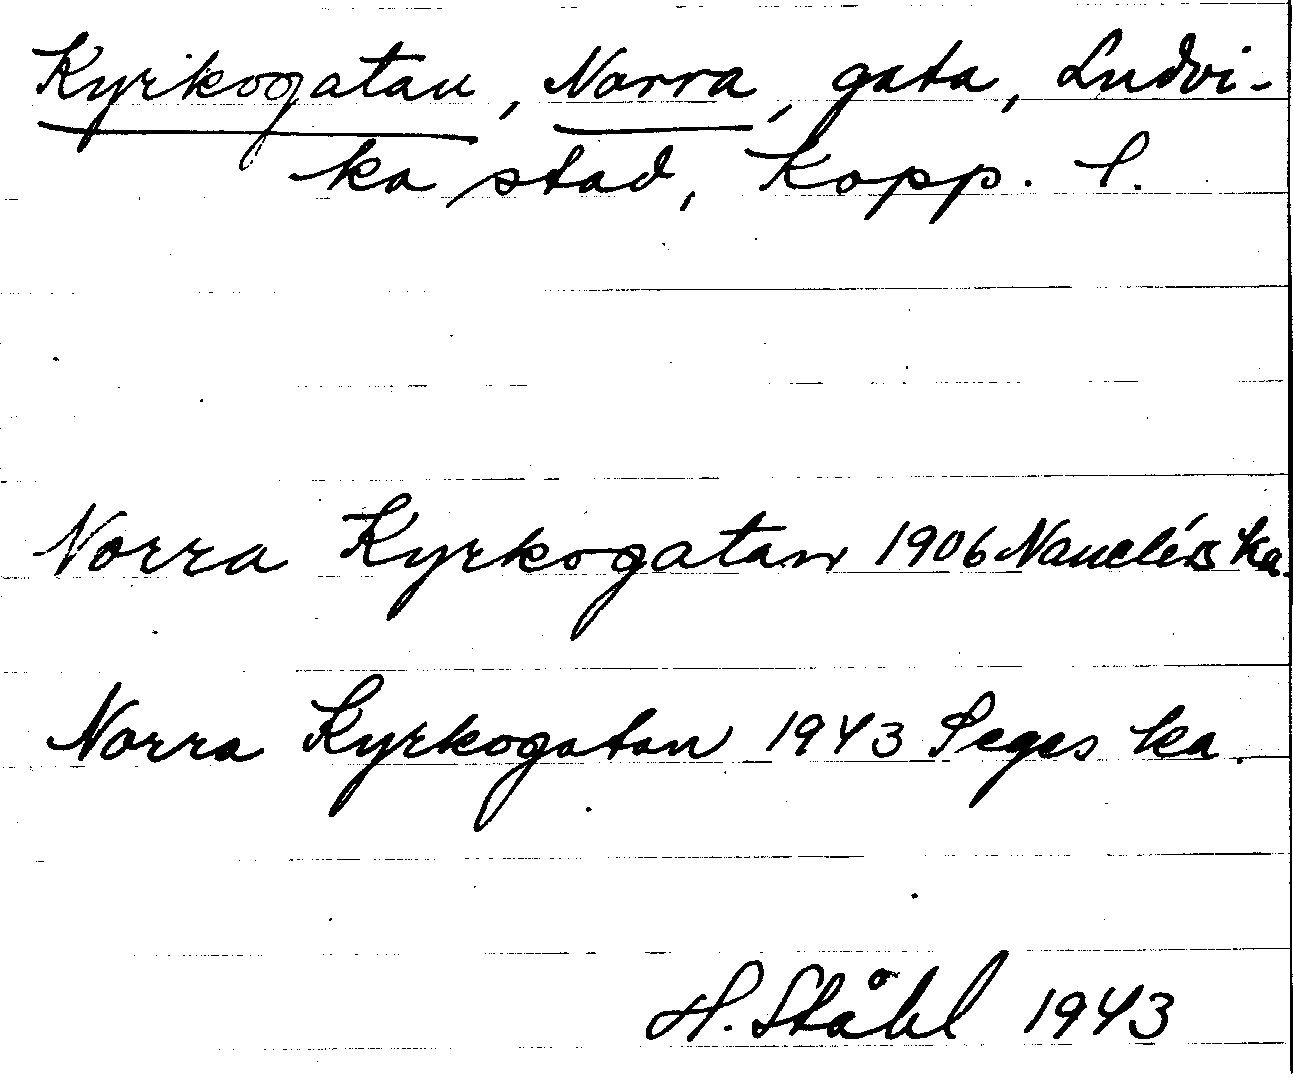 Kyrkogatan, Norra, gata, Ludvi-
ka stad, Kopp. l.
Norra Kyrkogatan 1906 Nauclérs ka.
Norra Kyrkogatan 1943 Seges ka.
H. Ståhl 1943